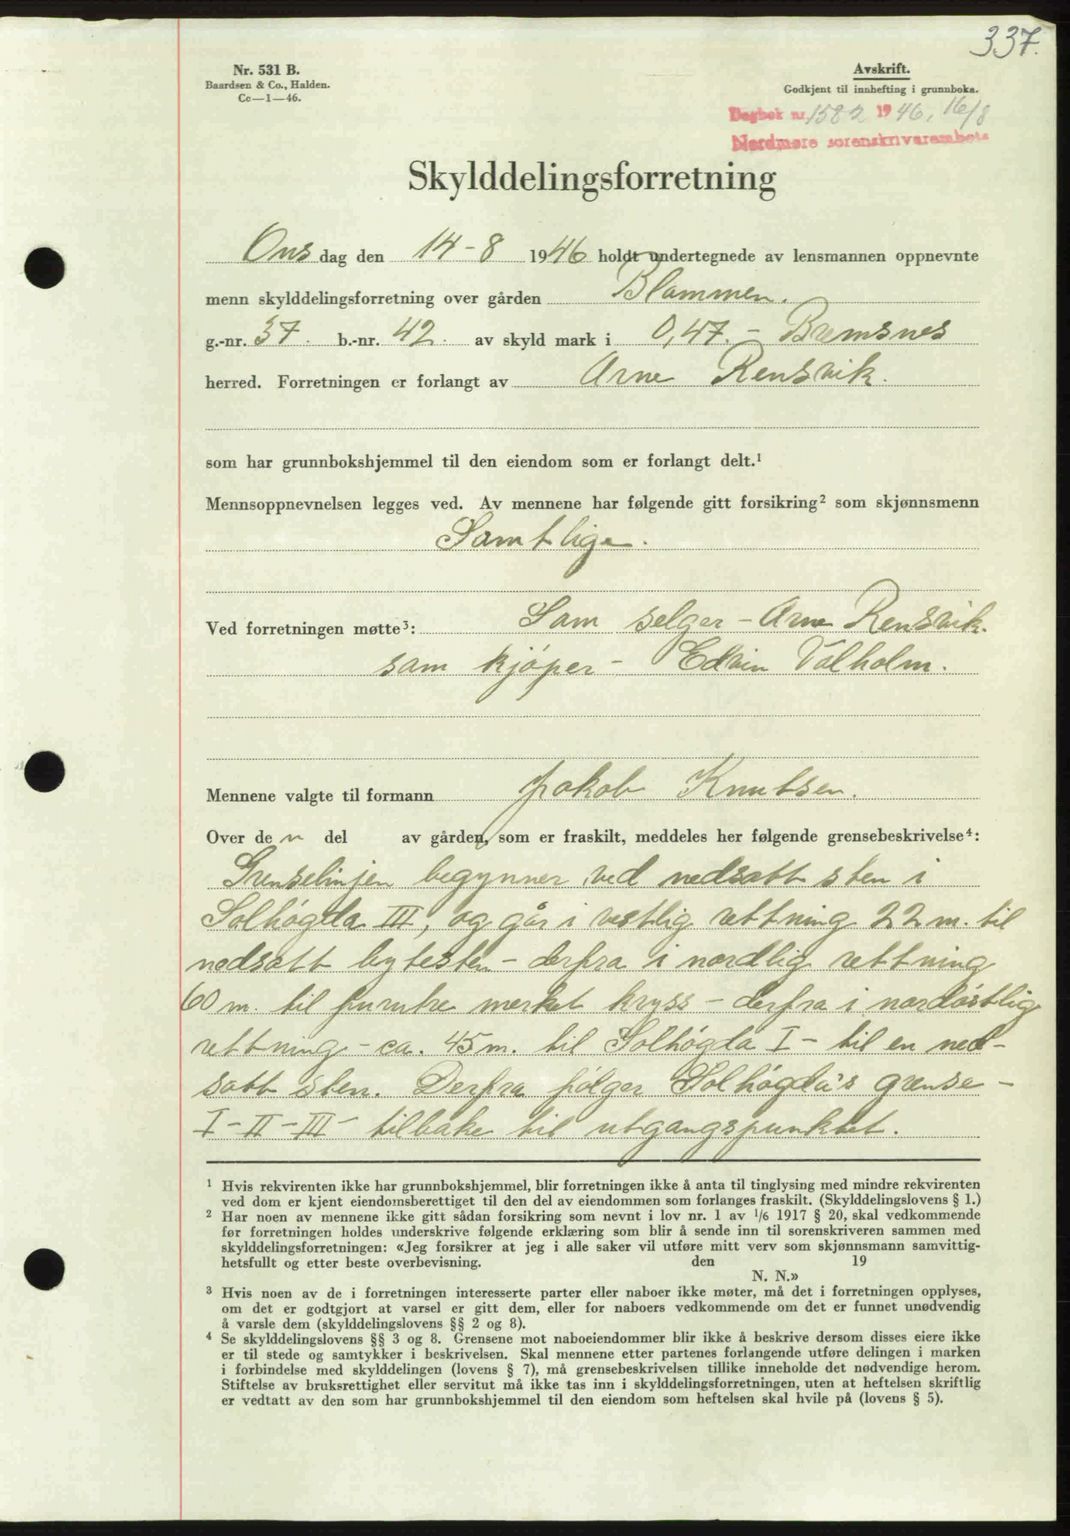 337.
Nr. 531 B.
Baardsen & Co., Halden.
Cc—1—46.
Avskrift.
Godkjent til innhefting i grunnboka.
Dagbok nr. 1582 1946, 16/8
Nordmøre sorenskriverembete
Skylddelingsforretning
Onsdag den 14-8 1946 holdt undertegnede av lensmannen oppnevnte
menn skylddelingsforretning over gården Blommen.
g.-nr. 37. b.-nr. 42. av skyld mark i 0,47. - Bremsnes
herred. Forretningen er forlangt av Arne Rensvik.
som har grunnbokshjemmel til den eiendom som er forlangt delt.¹
Mennsoppnevnelsen legges ved. Av mennene har følgende gitt forsikring² som skjønnsmenn
Samtlige.
Ved forretningen møtte³: Som selger - Arne Rensvik.
som kjöper - Edvin Valholm.
Mennene valgte til formann Jakob Knutsen.
Over den del av gården, som er fraskilt, meddeles her følgende grensebeskrivelse⁴:
Grenselinjen begynner ved nedsatt sten i
Solhögda III, og går i vestlig rettning 22 m. til
nedsatt bytesten - derfra i nordlig rettning
60 m. til furutre merket kryss - derfra i nordöstlig
rettning - ca. 45 m. til Solhögda I - til en ned-
satt sten. Derfra fölger Solhögda's grense -
I - II - III - tilbake til utgangspunktet.
¹ Hvis rekvirenten ikke har grunnbokshjemmel, blir forretningen ikke å anta til tinglysing med mindre rekvirenten
ved dom er kjent eiendomsberettiget til den del av eiendommen som forlanges fraskilt. (Skylddelingslovens § 1.)
² Har noen av mennene ikke gitt sådan forsikring som nevnt i lov nr. 1 av 1/6 1917 § 20, skal vedkommende
før forretningen holdes underskrive følgende erklæring som blir å sende inn til sorenskriveren sammen med
skylddelingsforretningen: «Jeg forsikrer at jeg i alle saker vil utføre mitt verv som skjønnsmann samvittig-
hetsfullt og etter beste overbevisning. den 19
N. N.»
³ Hvis noen av de i forretningen interesserte parter eller naboer ikke møter, må det i forretningen opplyses,
om det er godtgjort at varsel er gitt dem, eller for naboers vedkommende om det er funnet unødvendig
å varsle dem (skylddelingslovens §§ 2 og 8).
⁴ Se skylddelingslovens §§ 3 og 8. Grensene mot naboeiendommer blir ikke å beskrive dersom disses eiere ikke
er til stede og samtykker i beskrivelsen. Skal mennene etter partenes forlangende utføre delingen i marken
i forbindelse med skylddelingen (lovens § 7), må grensebeskrivelsen tillike inneholde det nødvendige herom.
Stiftelse av bruksrettighet eller servitut må ikke tas inn i skylddelingsforretningen, uten at heftelsen skriftlig
er vedtatt av den som har grunnbokshjemmel til den eiendom som heftelsen skal hvile på (lovens § 5).